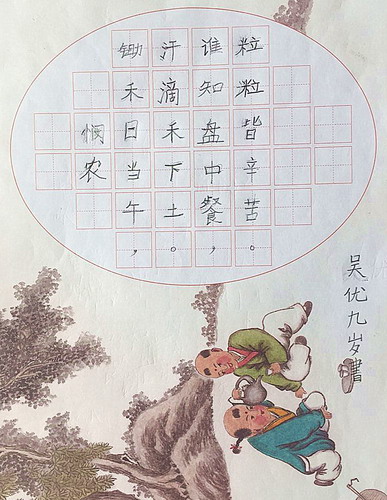 悯农
锄禾日当午，
汗滴禾下土。
谁知盘中餐，
粒粒皆辛苦。
吴优九岁書